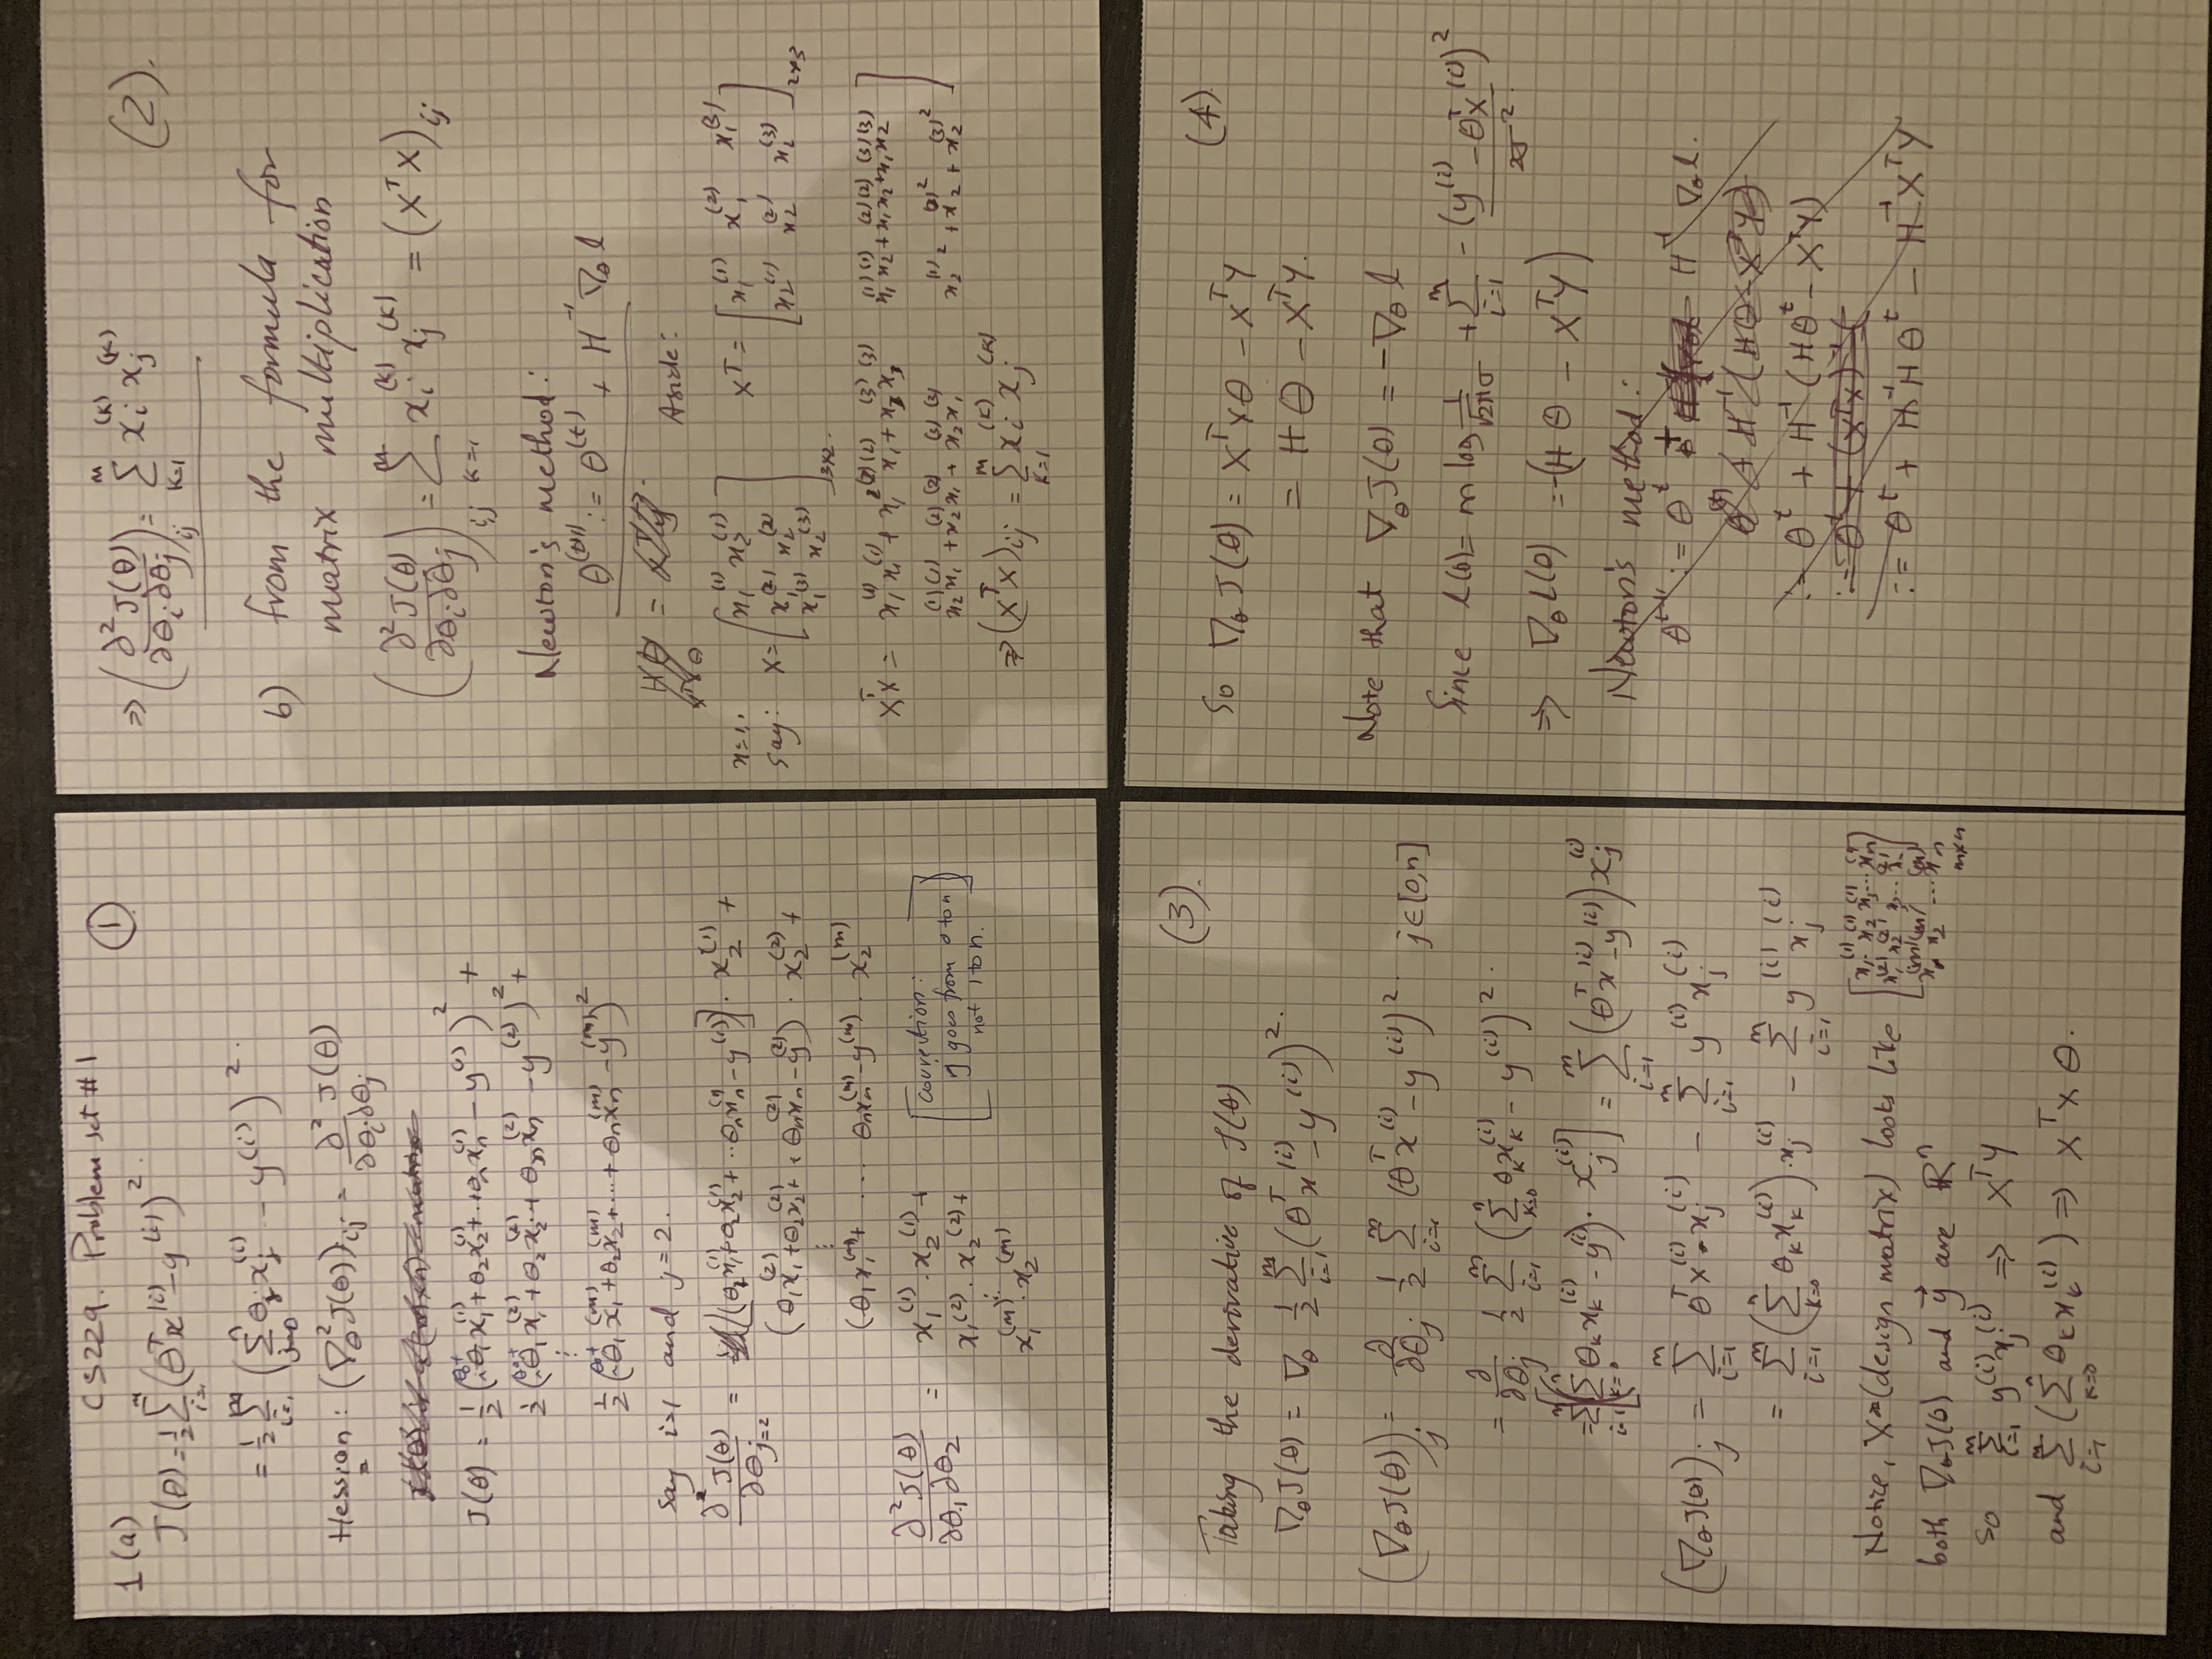 CS229. Problem set #1
①
1(a)
J(θ) = 1/2 Σ_{i=1}^{m} (θ^T x^(i) - y^(i))^2.
= 1/2 Σ_{i=1}^{m} (Σ_{j=0}^{n} θ_j x_j^(i) - y^(i))^2.
Hessian: (∇_θ^2 J(θ))_ij = ∂^2 J(θ) / ∂θ_i ∂θ_j
J(θ) = 1/2 (θ_0+ θ_1 x_1^(1) + θ_2 x_2^(1) + .. + θ_n x_n^(1) - y^(1))^2 +
1/2 (θ_0+ θ_1 x_1^(2) + θ_2 x_2^(2) .. + θ_n x_n^(2) - y^(2))^2 +
⋮
1/2 (θ_0+ θ_1 x_1^(m) + θ_2 x_2^(m) + ... + θ_n x_n^(m) - y^(m))^2
Say i=1 and j=2.
∂^2 J(θ) / ∂θ_{j=2} = (θ_1 x_1^(1) + θ_2 x_2^(1) + .. θ_n x_n^(1) - y^(1))] . x_2^(1) +
(θ_1 x_1^(2) + θ_2 x_2^(2) + .. θ_n x_n^(2) - y^(2)) . x_2^(2) +
⋮
(θ_1 x_1^(m) + ... θ_n x_n^(m) - y^(m) . x_2^(m)
∂^2 J(θ) / ∂θ_1 ∂θ_2 = x_1^(1) . x_2^(1) +
x_1^(2) . x_2^(2) +
⋮
x_1^(m) . x_2^(m)
[correction:
j goes from 0 to n
not 1 to n.]
(2).
⇒ (∂^2 J(θ) / ∂θ_i ∂θ_j)_ij = Σ_{k=1}^{m} x_i^(k) x_j^(k)
b) from the formula for
matrix multiplication
(∂^2 J(θ) / ∂θ_i ∂θ_j)_ij = Σ_{k=1}^{m} x_i^(k) x_j^(k) = (X^T X)_ij
Newton's method:
θ^(t+1) := θ^(t) + H^-1 ∇_θ l
Aside:
say: X = [x_1^(1) x_2^(1)
x_1^(2) x_2^(2)
x_1^(3) x_2^(3)]_{3×2}.
X^T = [x_1^(1) x_1^(2) x_1^(3)
x_2^(1) x_2^(2) x_2^(3)]_{2×3}
X^T X = x_1^(1) x_1^(1) + x_1^(2) x_1^(2) + x_1^(3) x_1^(3) x_1^(1) x_2^(1) + x_1^(2) x_2^(2) + x_1^(3) x_2^(3)
x_2^(1) x_1^(1) + x_2^(2) x_1^(2) + x_2^(3) x_1^(3) x_2^(1)2 + x_2^(2)2 + x_2^(3)2]
⇒ (X^T X)_ij = Σ_{k=1}^{m} x_i^(k) x_j^(k)
(3).
Taking the derivative of J(θ)
∇_θ J(θ) = ∇_θ 1/2 Σ_{i=1}^{m} (θ^T x^(i) - y^(i))^2.
(∇_θ J(θ))_j = ∂/∂θ_j 1/2 Σ_{i=1}^{m} (θ^T x^(i) - y^(i))^2. j ∈ [0,n]
= ∂/∂θ_j 1/2 Σ_{i=1}^{m} (Σ_{k=0}^{n} θ_k x_k^(i) - y^(i))^2.
= Σ_{i=1}^{m} [(Σ_{k=0}^{n} θ_k x_k^(i) - y^(i)) . x_j^(i)] = Σ_{i=1}^{m} (θ^T x^(i) - y^(i)) x_j^(i)
(∇_θ J(θ))_j = Σ_{i=1}^{m} θ^T x^(i) . x_j^(i) - Σ_{i=1}^{m} y^(i) x_j^(i)
= Σ_{i=1}^{m} (Σ_{k=0}^{n} θ_k x_k^(i)) . x_j^(i) - Σ_{i=1}^{m} y^(i) x_j^(i)
Notice, X (design matrix) looks like [x_1^(1) x_2^(1) x_3^(1) ... x_n^(1)
x_1^(2) x_2^(2) ...
x_1^(m) x_2^(m) ... x_n^(m)]
m×n
both ∇_θ J(θ) and y⃗ are ℝ^n
so Σ_{i=1}^{m} y^(i) x_j^(i) ⇒ X^T Y
and Σ_{i=1}^{m} (Σ_{k=0}^{n} θ_k x_k^(i)) ⇒ X^T X θ.
(4)
So ∇_θ J(θ) = X^T X θ - X^T Y
= H θ - X^T Y.
Note that ∇_θ J(θ) = -∇_θ l
Since l(θ) = m log 1/√2πσ + Σ_{i=1}^{m} - (y^(i) - θ^T x^(i))^2 / 2σ^2.
⇒ ∇_θ l(θ) = -(H θ - X^T Y)
Newton's method:
θ^t+1 := θ^t + H^-1 ∇_θ l.
θ^(t) + H^-1 (Hθ - X^T Y)
:= θ^t + H^-1 (Hθ^t - X^T Y)
:= θ^t + (X^T X)^-1 (
:= θ^t + H^-1 H θ^t - H^-1 X^T Y